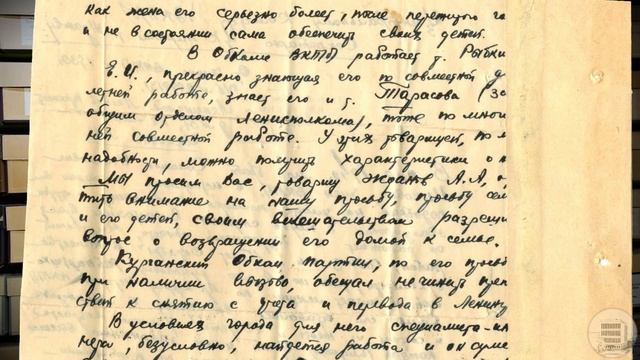 как жена его серьезно болеет, после пережитого го
и не в состоянии сама обеспечить своих детей.
В Обкоме ВКП(б) работает т. Рыбки
Е.И., прекрасно знающая его по совместной д
летней работе, знает его и т. Тарасова (за
общим отделом Ленисполкома), тоже по много
ней совместной работе. У этих товарищей, по м
надобности, можно получить характеристики о н
Мы просим Вас, товарищ Жданов А.А., о
тить внимание на нашу просьбу, просьбу сем
и его детей, своим вмешательством разреши
вопрос о возвращении его домой к семье.
Курганский Обком партии, по его просьб
при наличии вызова, обещал не чинить преп
ствий к снятию с учета и перевода в Ленинг
В условиях города для него специалиста-ин
нера, безусловно, найдется работа и он суме